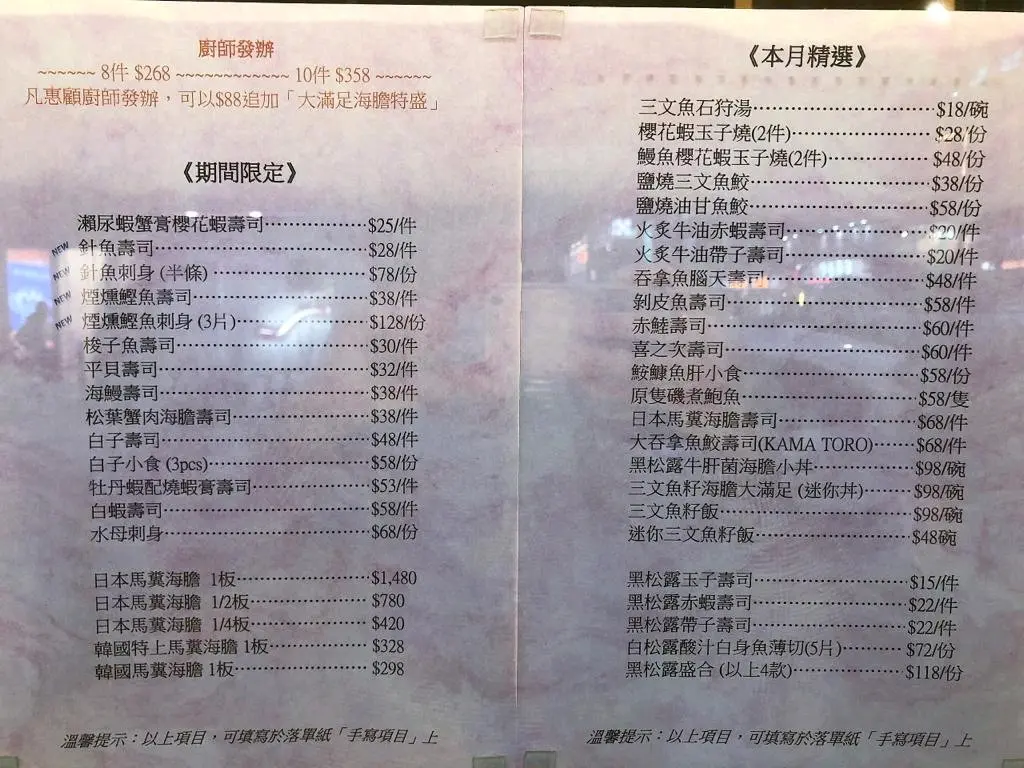 廚師發辦
~~~~~~ 8件 $268 ~~~~~~~~~~~~ 10件 $358 ~~~~~~
凡惠顧廚師發辦，可以$88追加「大滿足海膽特盛」
《期間限定》
瀨尿蝦蟹膏櫻花蝦壽司⋯⋯⋯⋯⋯⋯$25/件
NEW 針魚壽司⋯⋯⋯⋯⋯⋯$28/件
NEW 針魚刺身 (半條)⋯⋯⋯⋯⋯⋯$78/份
NEW 煙燻鰹魚壽司⋯⋯⋯⋯⋯⋯$38/件
NEW 煙燻鰹魚刺身 (3片)⋯⋯⋯⋯⋯⋯$128/份
梭子魚壽司⋯⋯⋯⋯⋯⋯$30/件
平貝壽司⋯⋯⋯⋯⋯⋯$32/件
海鰻壽司⋯⋯⋯⋯⋯⋯$38/件
松葉蟹肉海膽壽司⋯⋯⋯⋯⋯⋯$38/件
白子壽司⋯⋯⋯⋯⋯⋯$48/件
白子小食 (3pcs)⋯⋯⋯⋯⋯⋯$58/份
牡丹蝦配燒蝦膏壽司⋯⋯⋯⋯⋯⋯$53/件
白蝦壽司⋯⋯⋯⋯⋯⋯$58/件
水母刺身⋯⋯⋯⋯⋯⋯$68/份
日本馬糞海膽 1板⋯⋯⋯⋯⋯⋯$1,480
日本馬糞海膽 1/2板⋯⋯⋯⋯⋯⋯$780
日本馬糞海膽 1/4板⋯⋯⋯⋯⋯⋯$420
韓國特上馬糞海膽 1板⋯⋯⋯⋯⋯⋯$328
韓國馬糞海膽 1板⋯⋯⋯⋯⋯⋯$298
溫馨提示：以上項目，可填寫於落單紙「手寫項目」上
《本月精選》
三文魚石狩湯⋯⋯⋯⋯⋯⋯$18/碗
櫻花蝦玉子燒(2件)⋯⋯⋯⋯⋯⋯$28/份
鰻魚櫻花蝦玉子燒(2件)⋯⋯⋯⋯⋯⋯$48/份
鹽燒三文魚鮫⋯⋯⋯⋯⋯⋯$38/份
鹽燒油甘魚鮫⋯⋯⋯⋯⋯⋯$58/份
火炙牛油赤蝦壽司⋯⋯⋯⋯⋯⋯$20/件
火炙牛油帶子壽司⋯⋯⋯⋯⋯⋯$20/件
吞拿魚腦天壽司⋯⋯⋯⋯⋯⋯$48/件
剝皮魚壽司⋯⋯⋯⋯⋯⋯$58/件
赤鯥壽司⋯⋯⋯⋯⋯⋯$60/件
喜之次壽司⋯⋯⋯⋯⋯⋯$60/件
鮟鱇魚肝小食⋯⋯⋯⋯⋯⋯$58/份
原隻磯煮鮑魚⋯⋯⋯⋯⋯⋯$58/隻
日本馬糞海膽壽司⋯⋯⋯⋯⋯⋯$68/件
大吞拿魚鮫壽司(KAMA TORO)⋯⋯⋯⋯⋯⋯$68/件
黑松露牛肝菌海膽小丼⋯⋯⋯⋯⋯⋯$98/碗
三文魚籽海膽大滿足 (迷你丼)⋯⋯⋯⋯⋯⋯$98/碗
三文魚籽飯⋯⋯⋯⋯⋯⋯$98/碗
迷你三文魚籽飯⋯⋯⋯⋯⋯⋯$48碗
黑松露玉子壽司⋯⋯⋯⋯⋯⋯$15/件
黑松露赤蝦壽司⋯⋯⋯⋯⋯⋯$22/件
黑松露帶子壽司⋯⋯⋯⋯⋯⋯$22/件
白松露酸汁白身魚薄切(5片)⋯⋯⋯⋯⋯⋯$72/份
黑松露盛合 (以上4款)⋯⋯⋯⋯⋯⋯$118/份
溫馨提示：以上項目，可填寫於落單紙「手寫項目」上